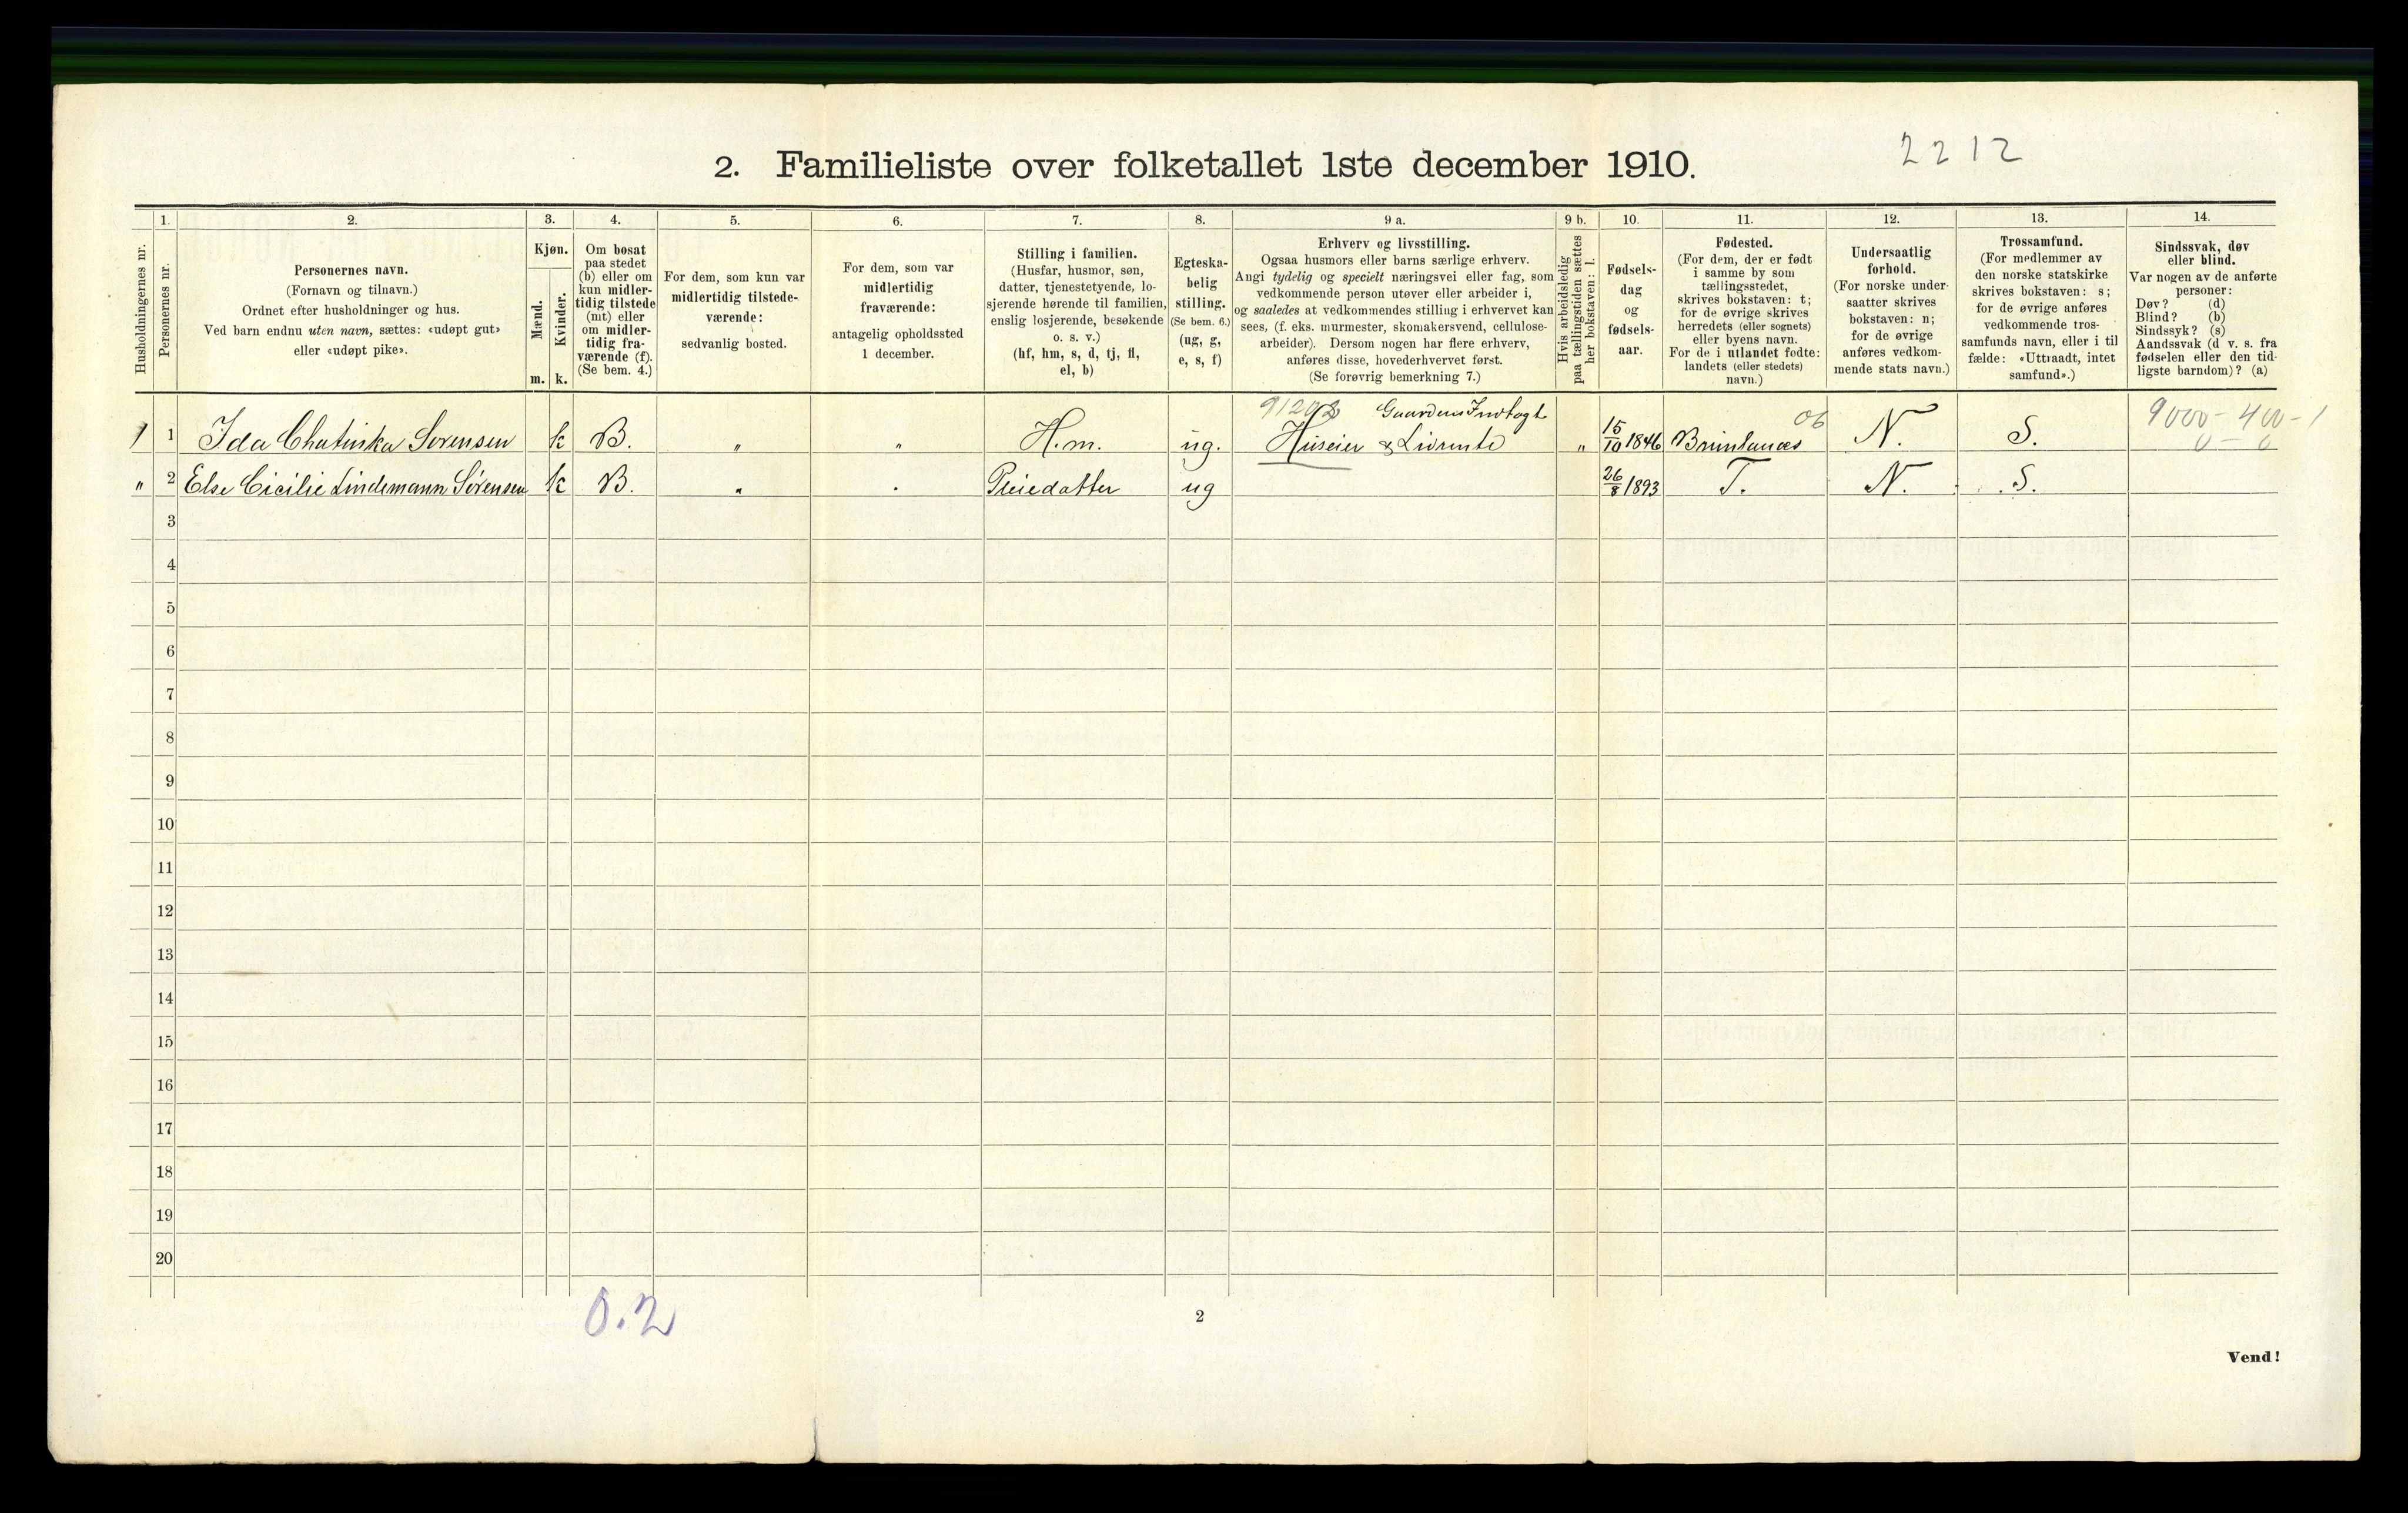 2212
2. Familieliste over folketallet 1ste december 1910.
Husholdningernes nr.
1.
Personernes nr.
2.
Personernes navn.
(Fornavn og tilnavn.)
Ordnet efter husholdninger og hus.
Ved barn endnu uten navn, sættes: «udøpt gut»
eller «udøpt pike».
3.
Kjøn.
Mænd.
Kvinder.
m. k.
4.
Om bosat
paa stedet
(b) eller om
kun midler-
tidig tilstede
(mt) eller
om midler-
tidig fra-
værende (f).
(Se bem. 4.)
5.
For dem, som kun var
midlertidig tilstede-
værende:
sedvanlig bosted.
6.
For dem, som var
midlertidig
fraværende:
antagelig opholdssted
1 december.
7.
Stilling i familien.
(Husfar, husmor, søn,
datter, tjenestetyende, lo-
sjerende hørende til familien,
enslig losjerende, besøkende
o. s. v.)
(hf, hm, s, d, tj, fl,
el, b)
8.
Egteska-
belig
stilling.
(Se bem. 6.)
(ug, g,
e, s, f)
9 a.
Erhverv og livsstilling.
Ogsaa husmors eller barns særlige erhverv.
Angi tydelig og specielt næringsvei eller fag, som
vedkommende person utøver eller arbeider i,
og saaledes at vedkommendes stilling i erhvervet kan
sees, (f. eks. murmester, skomakersvend, cellulose-
arbeider). Dersom nogen har flere erhverv,
anføres disse, hovederhvervet først.
(Se forøvrig bemerkning 7.)
9 b.
Hvis arbeidsledig
paa tællingstiden sættes
her bokstaven: l.
10.
Fødsels-
dag
og
fødsels-
aar.
11.
Fødested.
(For dem, der er født
i samme by som
tællingsstedet,
skrives bokstaven: t;
for de øvrige skrives
herredets (eller sognets)
eller byens navn.
For de i utlandet fødte:
landets (eller stedets)
navn.)
12.
Undersaatlig
forhold.
(For norske under-
saatter skrives
bokstaven: n;
for de øvrige
anføres vedkom-
mende stats navn.)
13.
Trossamfund.
(For medlemmer av
den norske statskirke
skrives bokstaven: s;
for de øvrige anføres
vedkommende tros-
samfunds navn, eller i til
fælde: «Uttraadt, intet
samfund».)
14.
Sindssvak, døv
eller blind.
Var nogen av de anførte
personer:
Døv? (d)
Blind? (b)
Sindssyk? (s)
Aandssvak (d. v. s. fra
fødselen eller den tid-
ligste barndom)? (a)
Gaardens Indtægt 06 9000-400-1
1 1 Ida Chatinka Sørensen k B. " " H.m. ug. Huseier & Livrente " 15/10 1846 Brunlanæs N. S. 0-0
" 2 Else Cicilie Lindemann Sørensen k B. " " Pleiedatter ug 26/8 1893 T. N. S.
3
4
5
6
7
8
9
10
11
12
13
14
15
16
17
18
19
20
0.2
2
Vend!